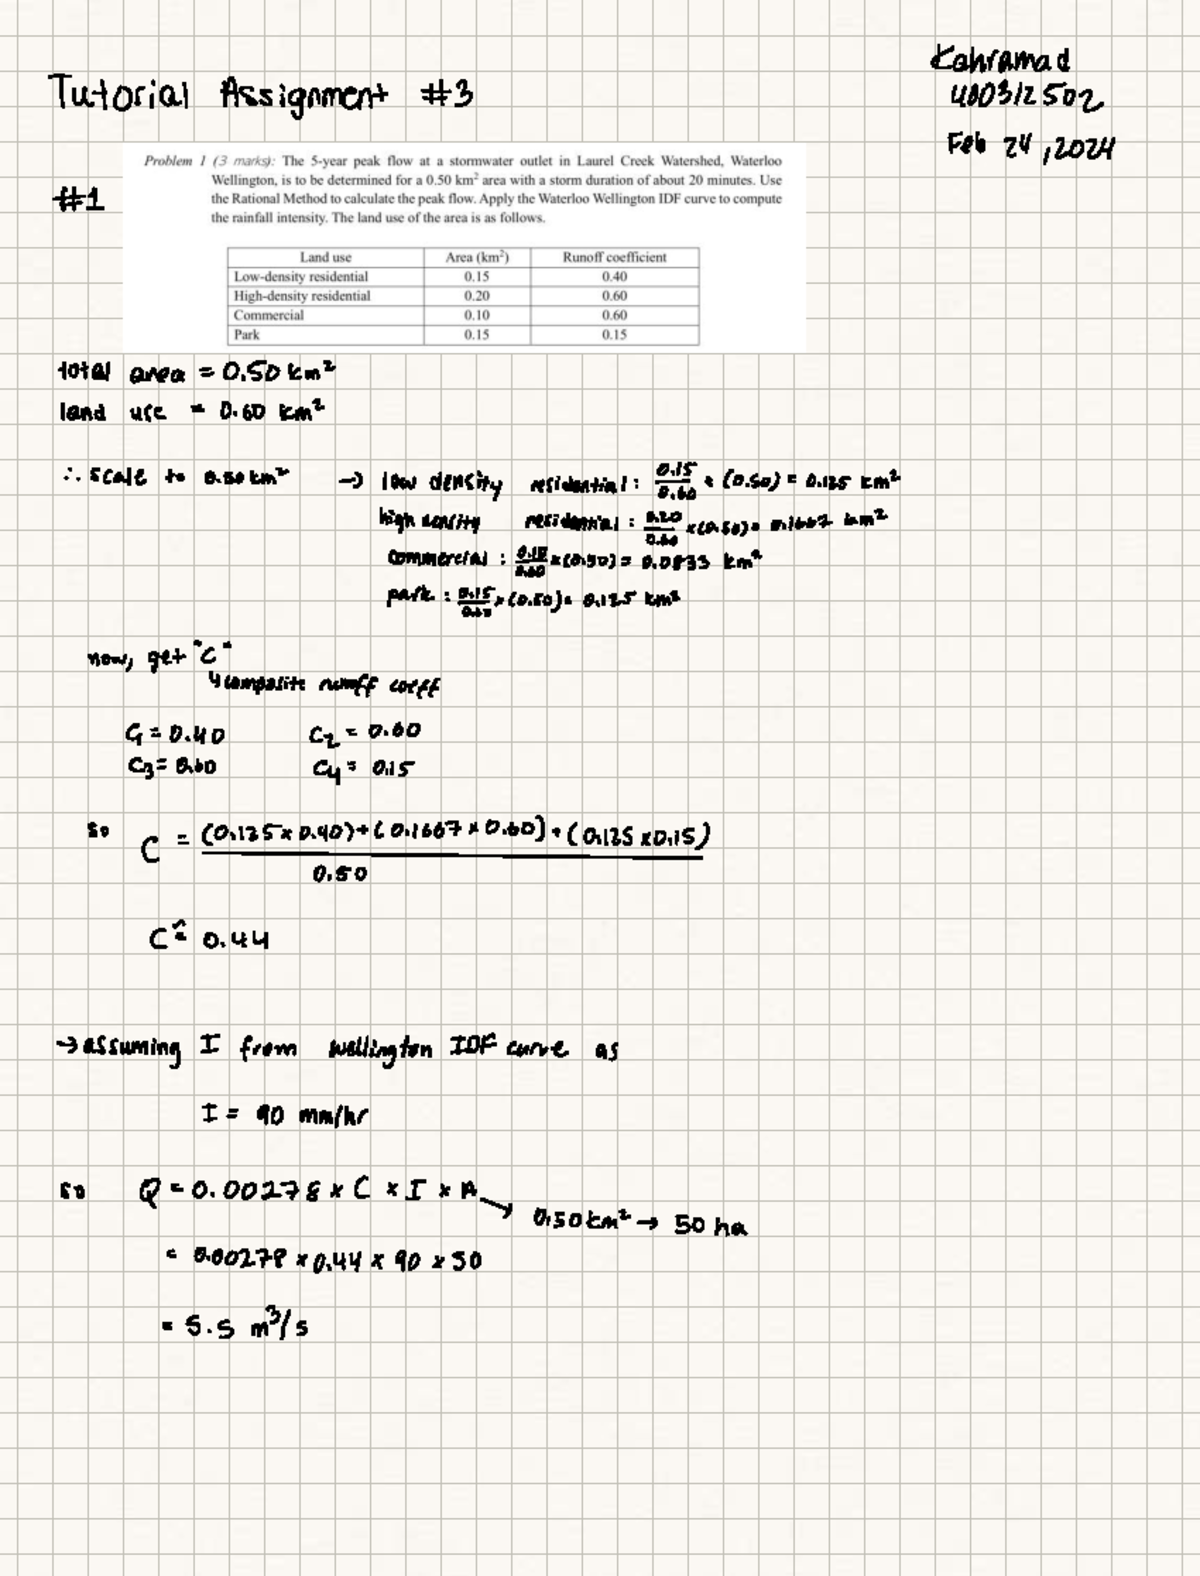 Tutorial Assignment #3
Kahramad
400312502
Feb 24, 2024
#1
Problem 1 (3 marks): The 5-year peak flow at a stormwater outlet in Laurel Creek Watershed, Waterloo
Wellington, is to be determined for a 0.50 km² area with a storm duration of about 20 minutes. Use
the Rational Method to calculate the peak flow. Apply the Waterloo Wellington IDF curve to compute
the rainfall intensity. The land use of the area is as follows.
Land use Area (km²) Runoff coefficient
Low-density residential 0.15 0.40
High-density residential 0.20 0.60
Commercial 0.10 0.60
Park 0.15 0.15
total area = 0.50 km²
land use = 0.60 km²
∴ scale to 0.50 km² → low density residential : 0.15/0.60 × (0.50) = 0.125 km²
high density residential : 0.20/0.60 × (0.50) = 0.1667 km²
commercial : 0.10/0.60 × (0.50) = 0.0833 km²
park : 0.15/0.60 × (0.50) = 0.125 km²
now, get "C"
↳ composite runoff coeff
C₁ = 0.40 C₂ = 0.60
C₃ = 0.60 C₄ = 0.15
so C = (0.125 × 0.40) + (0.1667 × 0.60) + (0.125 × 0.15)
0.50
C ≈ 0.44
→ assuming I from wellington IDF curve as
I = 90 mm/hr
so Q = 0.00278 × C × I × A → 0.50 km² → 50 ha
= 0.00278 × 0.44 × 90 × 50
= 5.5 m³/s